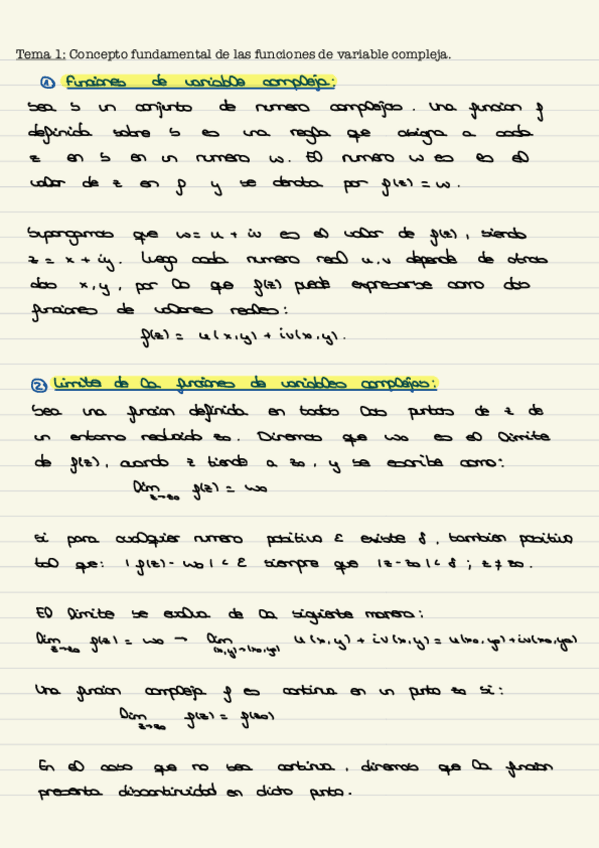 Tema 1: Concepto fundamental de las funciones de variable compleja.
① Funciones de variable compleja:
Sea S un conjunto de numero complejos. Una funcion f
definida sobre S es una regla que asigna a cada
z en S en un numero w. El numero w es es el
valor de z en f y se denota por f(z) = w.
Supongamos que w = u + iv es el valor de f(z), siendo
z = x + iy. Luego cada numero real u, v depende de otros
dos x, y, por lo que f(z) puede expresarse como dos
funciones de valores reales:
f(z) = u(x,y) + iv(x,y).
② Limite de la funciones de variables complejas:
Sea una funcion definida en todos los puntos de z de
un entorno reducido z₀. Diremos que w₀ es el limite
de f(z), cuando z tiende a z₀, y se escribe como:
lim z→z₀ f(z) = w₀
Si para cualquier numero positivo ε existe δ, tambien positivo
tal que: |f(z) - w₀| < ε siempre que |z - z₀| < δ ; z ≠ z₀.
El limite se evalua de la siguiente manera:
lim z→z₀ f(z) = w₀ → lim (x,y)→(x₀,y₀) u(x,y) + iv(x,y) = u(x₀,y₀) + iv(x₀,y₀)
Una funcion compleja f es continua en un punto z₀ si:
lim z→z₀ f(z) = f(z₀)
En el caso que no sea continua, diremos que la funcion
presenta discontinuidad en dicho punto.